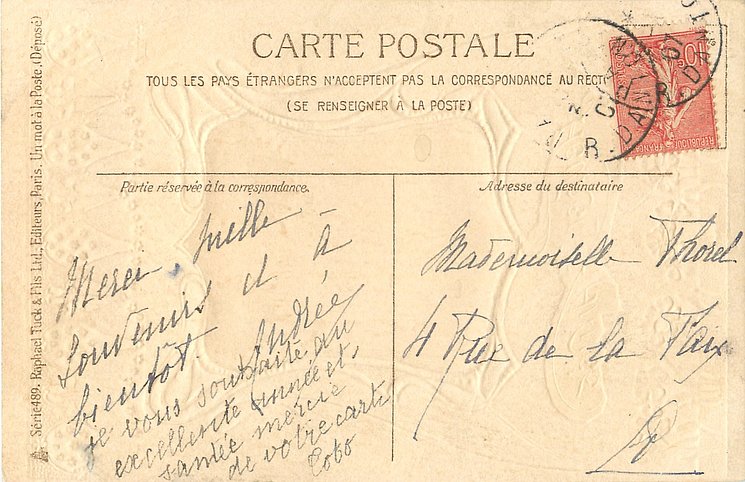 CARTE POSTALE
TOUS LES PAYS ÉTRANGERS N'ACCEPTENT PAS LA CORRESPONDANCE AU RECTO
(SE RENSEIGNER À LA POSTE)
Série 489. Raphael Tuck & Fils Ltd., Editeurs, Paris. Un mot à la Poste. (Déposé)
10
RÉPUBLIQUE FRANÇAISE
Partie réservée à la correspondance.
Merci, mille
souvenirs et à
bientôt. Andrée
je vous souhaite, du
excellente année et,
santée mercie
de votre carte
Toto
Adresse du destinataire
Mademoiselle Thorel
4 Rue de la Paix